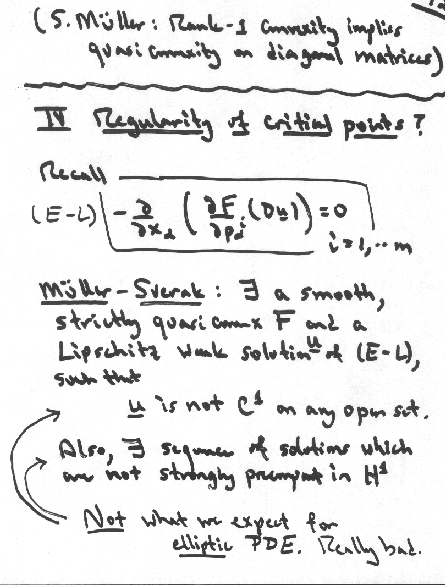 (S. Müller: Rank-1 convexity implies
quasiconvexity on diagonal matrices)
IV Regularity of critical points?
Recall
(E-L) -∂/∂x_α (∂F/∂p_α^i (Du)) = 0
i=1,..m
Müller-Sverak: ∃ a smooth,
strictly quasiconvex F and a
Lipschitz weak solution u of (E-L),
such that
u is not C^1 on any open set.
Also, ∃ sequence of solutions which
are not strongly precompact in H^1
Not what we expect for
elliptic PDE. Really bad.